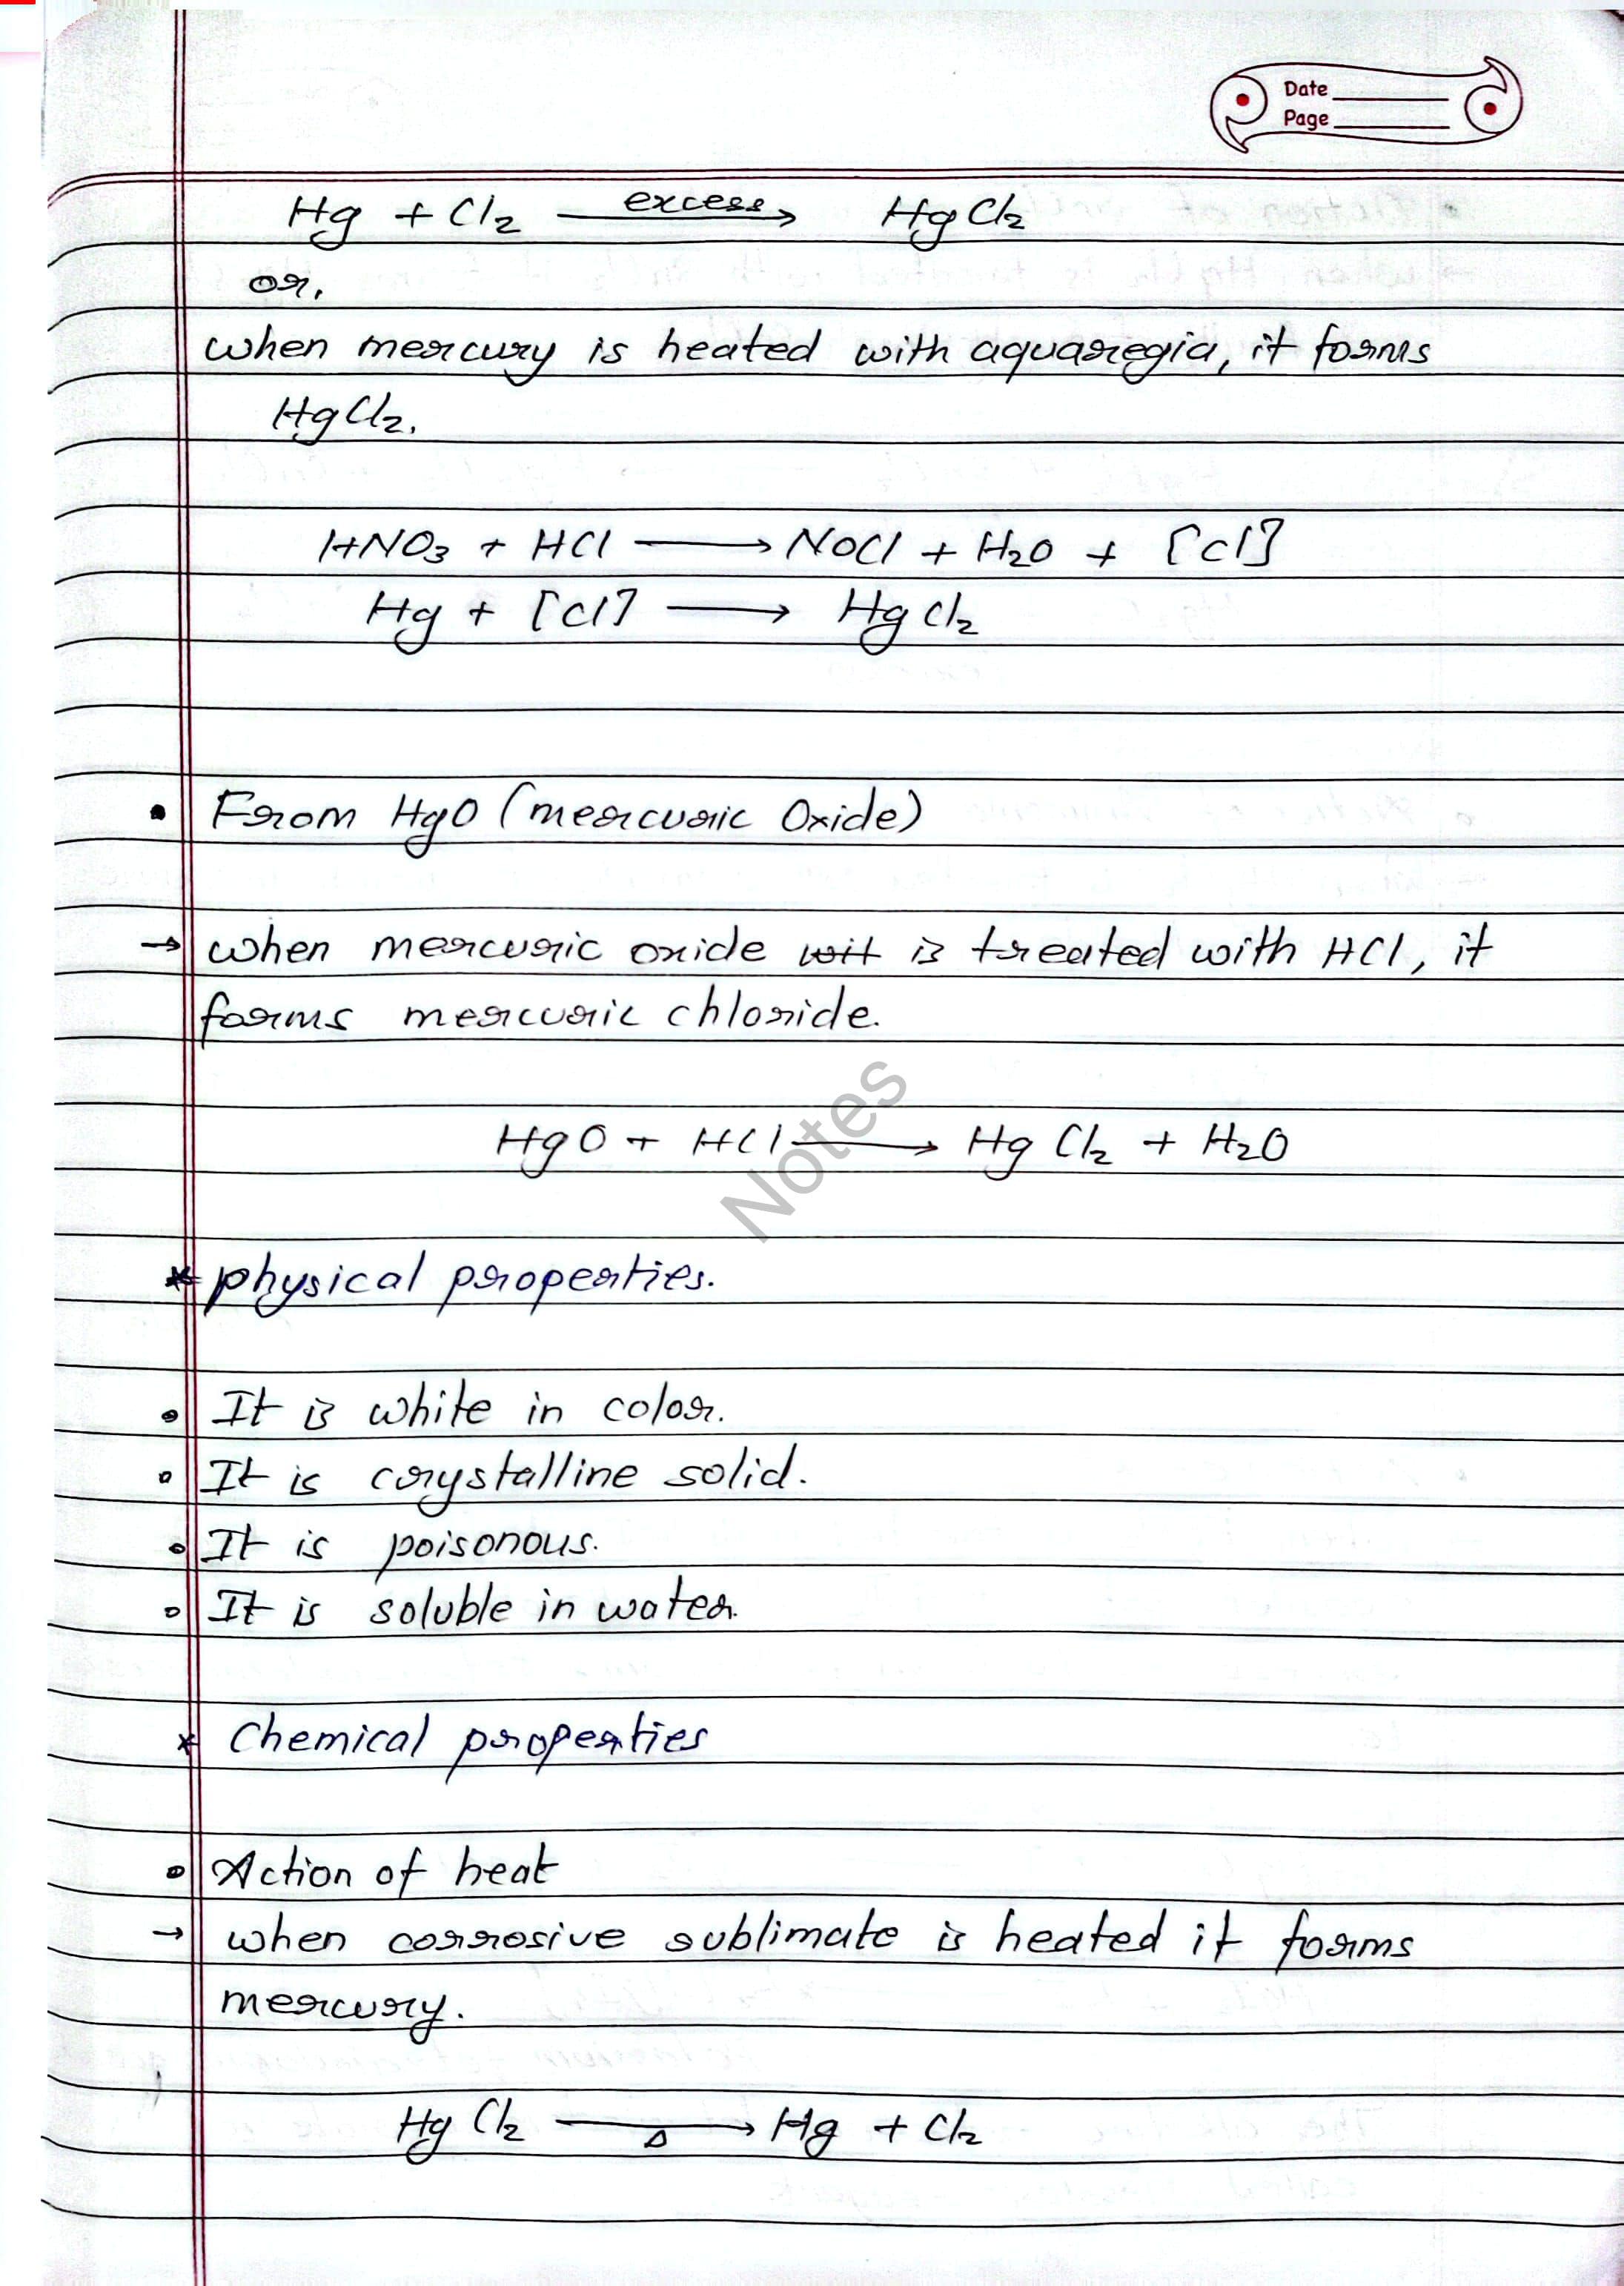 Date
Page
Hg + Cl₂ —excess→ HgCl₂
or,
when mercury is heated with aquaregia, it forms
HgCl₂.
HNO₃ + HCl ⟶ NOCl + H₂O + [Cl]
Hg + [Cl] ⟶ HgCl₂
• From HgO (mercuric Oxide)
→ when mercuric oxide wit is treated with HCl, it
forms mercuric chloride.
HgO + HCl ⟶ HgCl₂ + H₂O
Notes
* physical properties.
• It is white in color.
• It is crystalline solid.
• It is poisonous.
• It is soluble in water.
* Chemical properties
• Action of heat
→ when corrosive sublimate is heated it forms
mercury.
HgCl₂ —Δ→ Hg + Cl₂